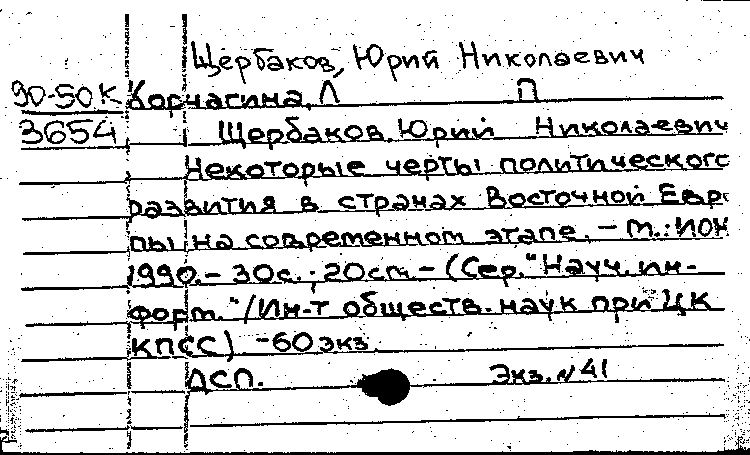 Щербаков, Юрий Николаевич
90-50К Корчагина, Л П
3654 Щербаков, Юрий Николаевич
Некоторые черты политического
развития в странах Восточной Евро
пы на современном этапе. - М.: ИОН
1990. - 30с.; 20см. - (Сер. "Науч. ин-
форм." /Ин-т обществ. наук при ЦК
КПСС) - 60 экз.
ДСП. Экз. № 41